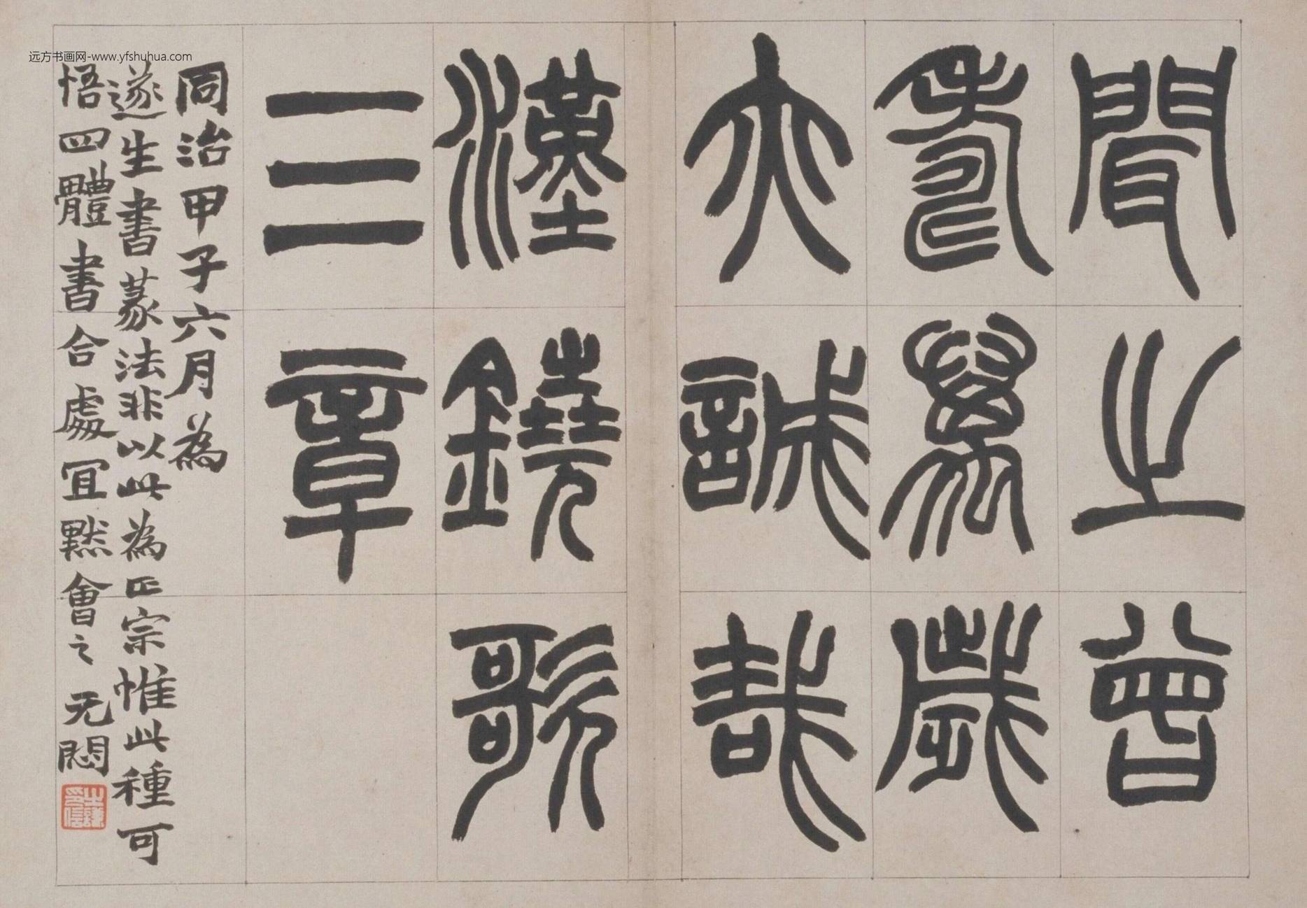 远方书画网-www.yfshuhua.com
聞之曾
壽萬歲
亦誠哉
漢鐃歌
三章
同治甲子六月為
遂生書篆法非以此為正宗惟此種可
悟四體書合處宜默會之 无悶
之謙印信